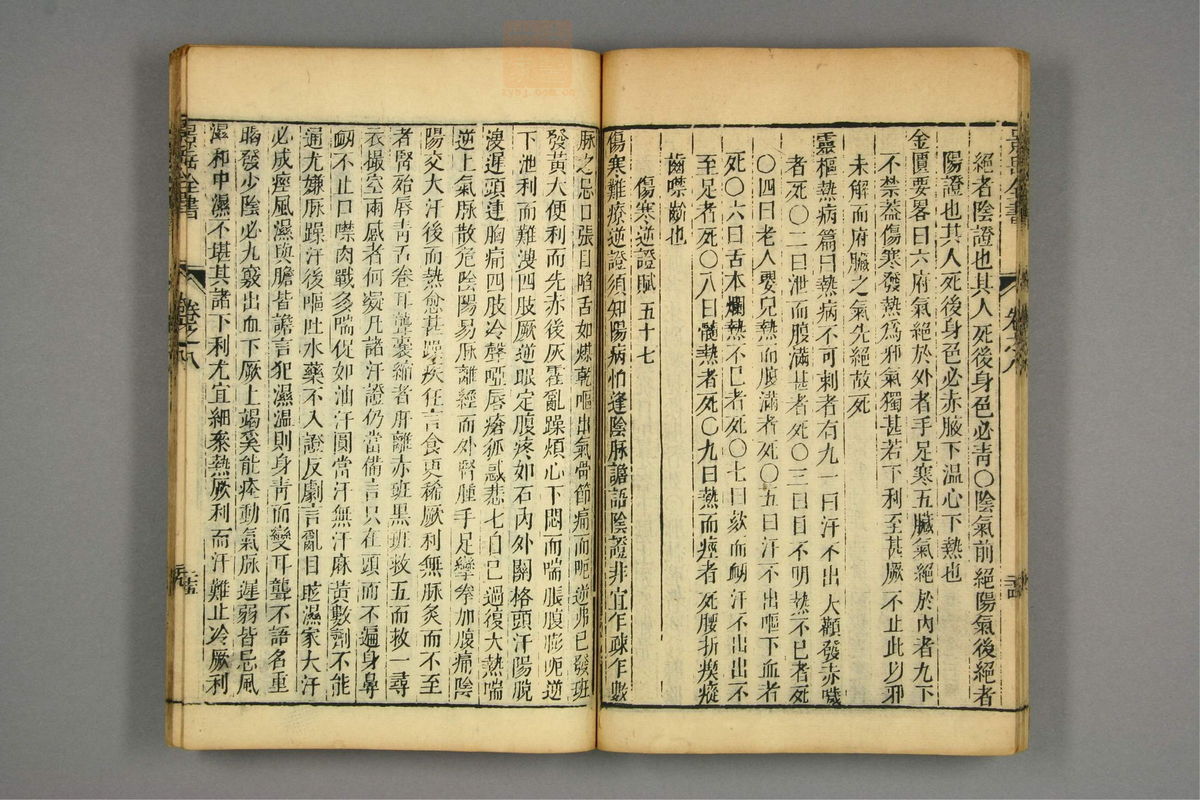 景岳全書 卷之八
絕者陰證也其人死後身色必青〇陰氣前絕陽氣後絕者
陽證也其人死後身色必赤腋下温心下熱也
金匱要畧曰六府氣絕於外者手足寒五臟氣絕於内者九下
不禁葢傷寒發熱爲邪氣獨甚若下利至甚厥不止此以邪
未解而府臟之氣先絕故死
靈樞熱病篇曰熱病不可刺者有九一曰汗不出大顴發赤噦
者死〇二曰泄而腹滿甚者死〇三曰目不明熱不已者死
〇四曰老人嬰兒熱而腹滿者死〇五曰汗不出嘔下血者
死〇六曰舌本爛熱不已者死〇七曰欬而衂汗不出出不
至足者死〇八曰髓熱者死〇九曰熱而痙者死腰折瘈瘲
齒噤齘也
傷寒逆證賦 五十七
傷寒難療逆證須知陽病怕逢陰脉譫語陰證非宜乍疎乍數
脉之忌口張目陷舌如煤乾嘔出氣骨節痛而呃逆弗已發班
發黄大便利而先赤後灰霍亂躁煩心下悶而喘脹腹膨呃逆
下泄利而難溲四肢厥逆眼定腹疼如石内外關格頭汗陽脫
溲遲頭連胸痛四肢冷聲啞唇瘡狐惑悲七日已過復大熱喘
逆上氣脉散危陰陽易脉離經而外腎腫手足攣拳加腹痛陰
陽交大汗後而熱愈甚躁疾狂言食更稀厥利無脉灸而不至
者腎殆唇青舌卷耳聾囊縮者肝離赤班黑班救五而救一尋
衣撮空兩感者何疑凡諸汗證仍當備言只在頭而不遍身鼻
衂不止口噤肉戰多喘促如油汗圓當汗無汗麻黄數劑不能
通尤嫌脉躁汗後嘔吐水藥不入證反劇言亂目眩濕家大汗
必成痙風濕與膽皆譫言犯濕温則身青而變耳聾不語名重
暍發少陰必九竅出血下厥上竭奚能痊動氣脉遲弱皆忌風
濕和中濕不堪其諸下利尤宜細察熱厥利而汗難止冷厥利
景岳全書 卷之八